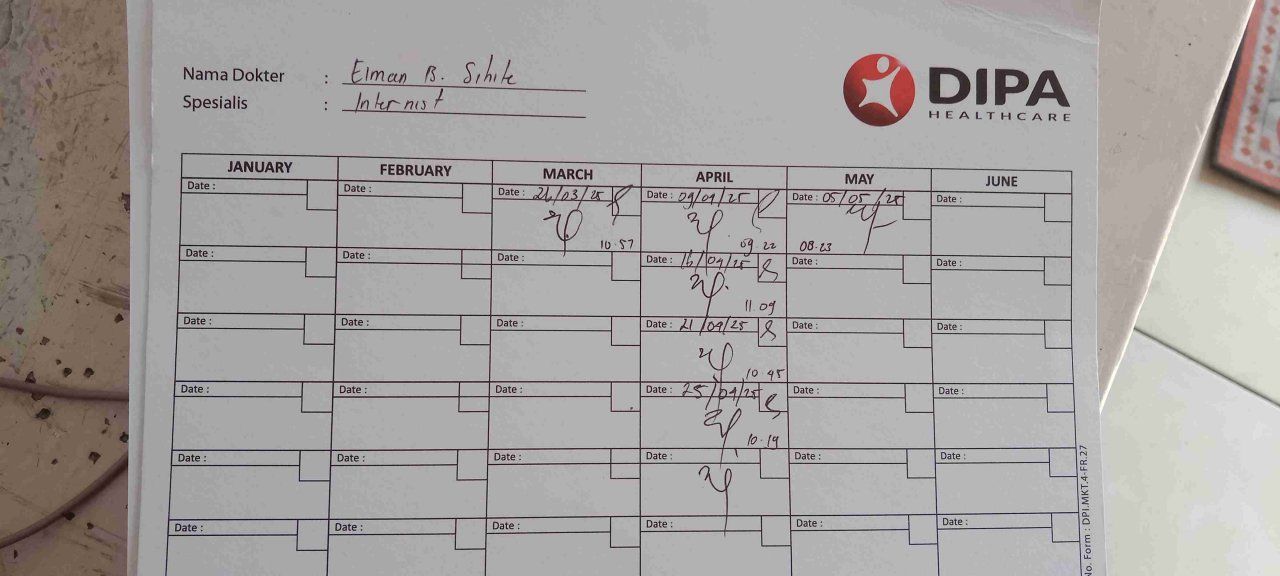 Nama Dokter : Elman B. Sihite
Spesialis : Internist
DIPA
HEALTHCARE
JANUARY FEBRUARY MARCH APRIL MAY JUNE
Date : Date : Date : 26/03/25 Date : 09/04/25 Date : 05/05/25 Date :
10.57 09.22 08.23
Date : Date : Date : Date : 16/04/25 Date : Date :
11.09
Date : Date : Date : Date : 21/04/25 Date : Date :
10.45
Date : Date : Date : Date : 25/04/25 Date : Date :
10.19
Date : Date : Date : Date : Date : Date :
Date : Date : Date : Date : Date : Date :
No. Form : DPI.MKT.4-FR.27